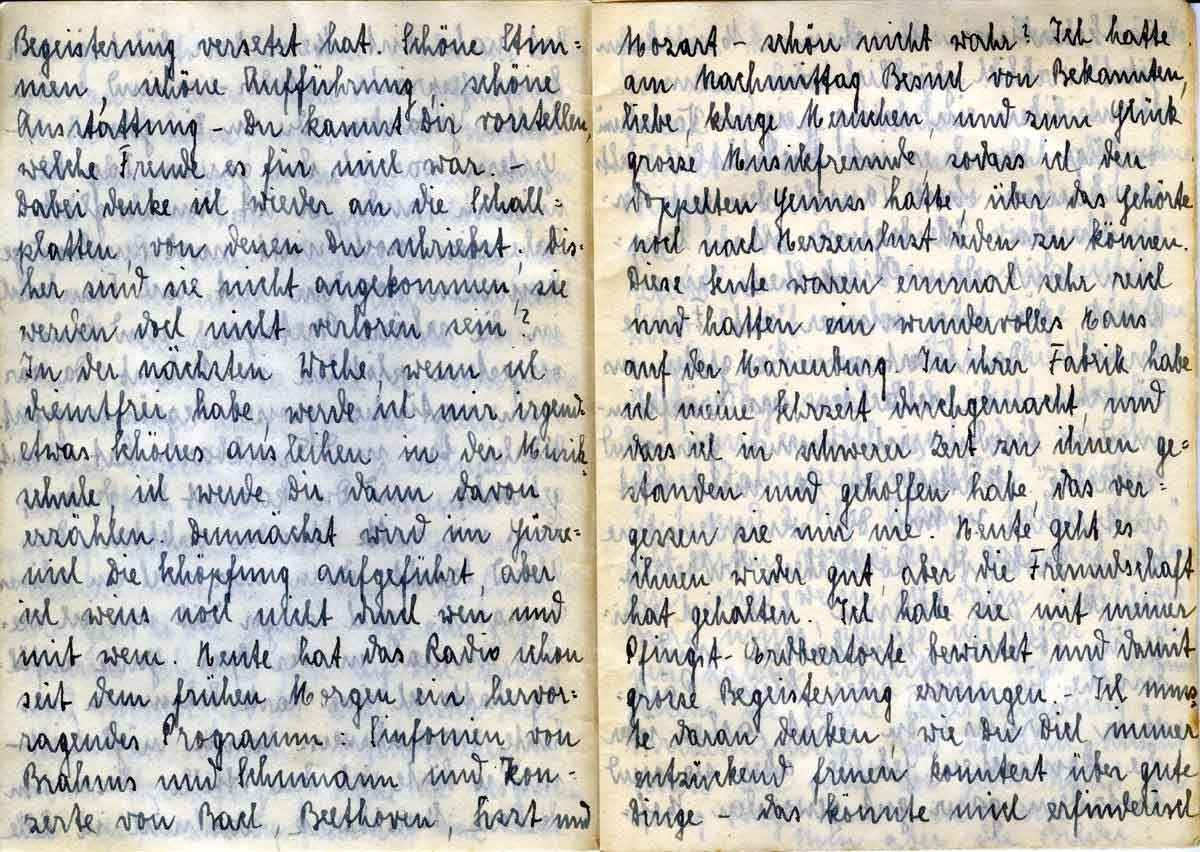 Begeisterung versetzt hat. Schöne Stim=
men, schöne Aufführung, schöne
Ausstattung – Du kannst Dir vorstellen,
welche Freude es für mich war. –
Dabei denke ich wieder an die Schall=
platten, von denen Du schriebst; bis=
her sind sie nicht angekommen, sie
werden doch nicht verloren sein?
In der nächsten Woche, wenn ich
dienstfrei habe, werde ich mir irgend
etwas Schönes ausleihen in der Musik
schule, ich werde Dir dann davon
erzählen. Demnächst wird im Gürze=
nich die Schöpfung aufgeführt, aber
ich weiss noch nicht durch wen, und
mit wem. Heute hat das Radio schon
seit dem frühen Morgen ein hervor=
ragendes Programm: Sinfonien von
Brahms und Schumann und Kon=
zerte von Bach, Beethoven, Liszt und
Mozart – schön nicht wahr? Ich hatte
am Nachmittag Besuch von Bekannten,
liebe, kluge Menschen, und zum Glück
grosse Musikfreunde, sodass ich den
doppelten Genuss hatte, über das Gehörte
noch nach Herzenslust reden zu können.
Diese Leute waren einmal sehr reich
und hatten ein wundervolles Haus
auf der Marienburg. In ihrer Fabrik habe
ich meine Lehrzeit durchgemacht, und
dass ich in schwerer Zeit zu ihnen ge=
standen und geholfen habe, das ver=
gessen sie mir nie. Heute geht es
ihnen wieder gut, aber die Freundschaft
hat gehalten. Ich habe sie mit meiner
Pfingst-Erdbeertorte bewirtet und damit
grosse Begeisterung errungen. – Ich muss=
te daran denken, wie Du Dich immer
entzückend freuen konntest über gute
Dinge – das könnte mich erfinderisch